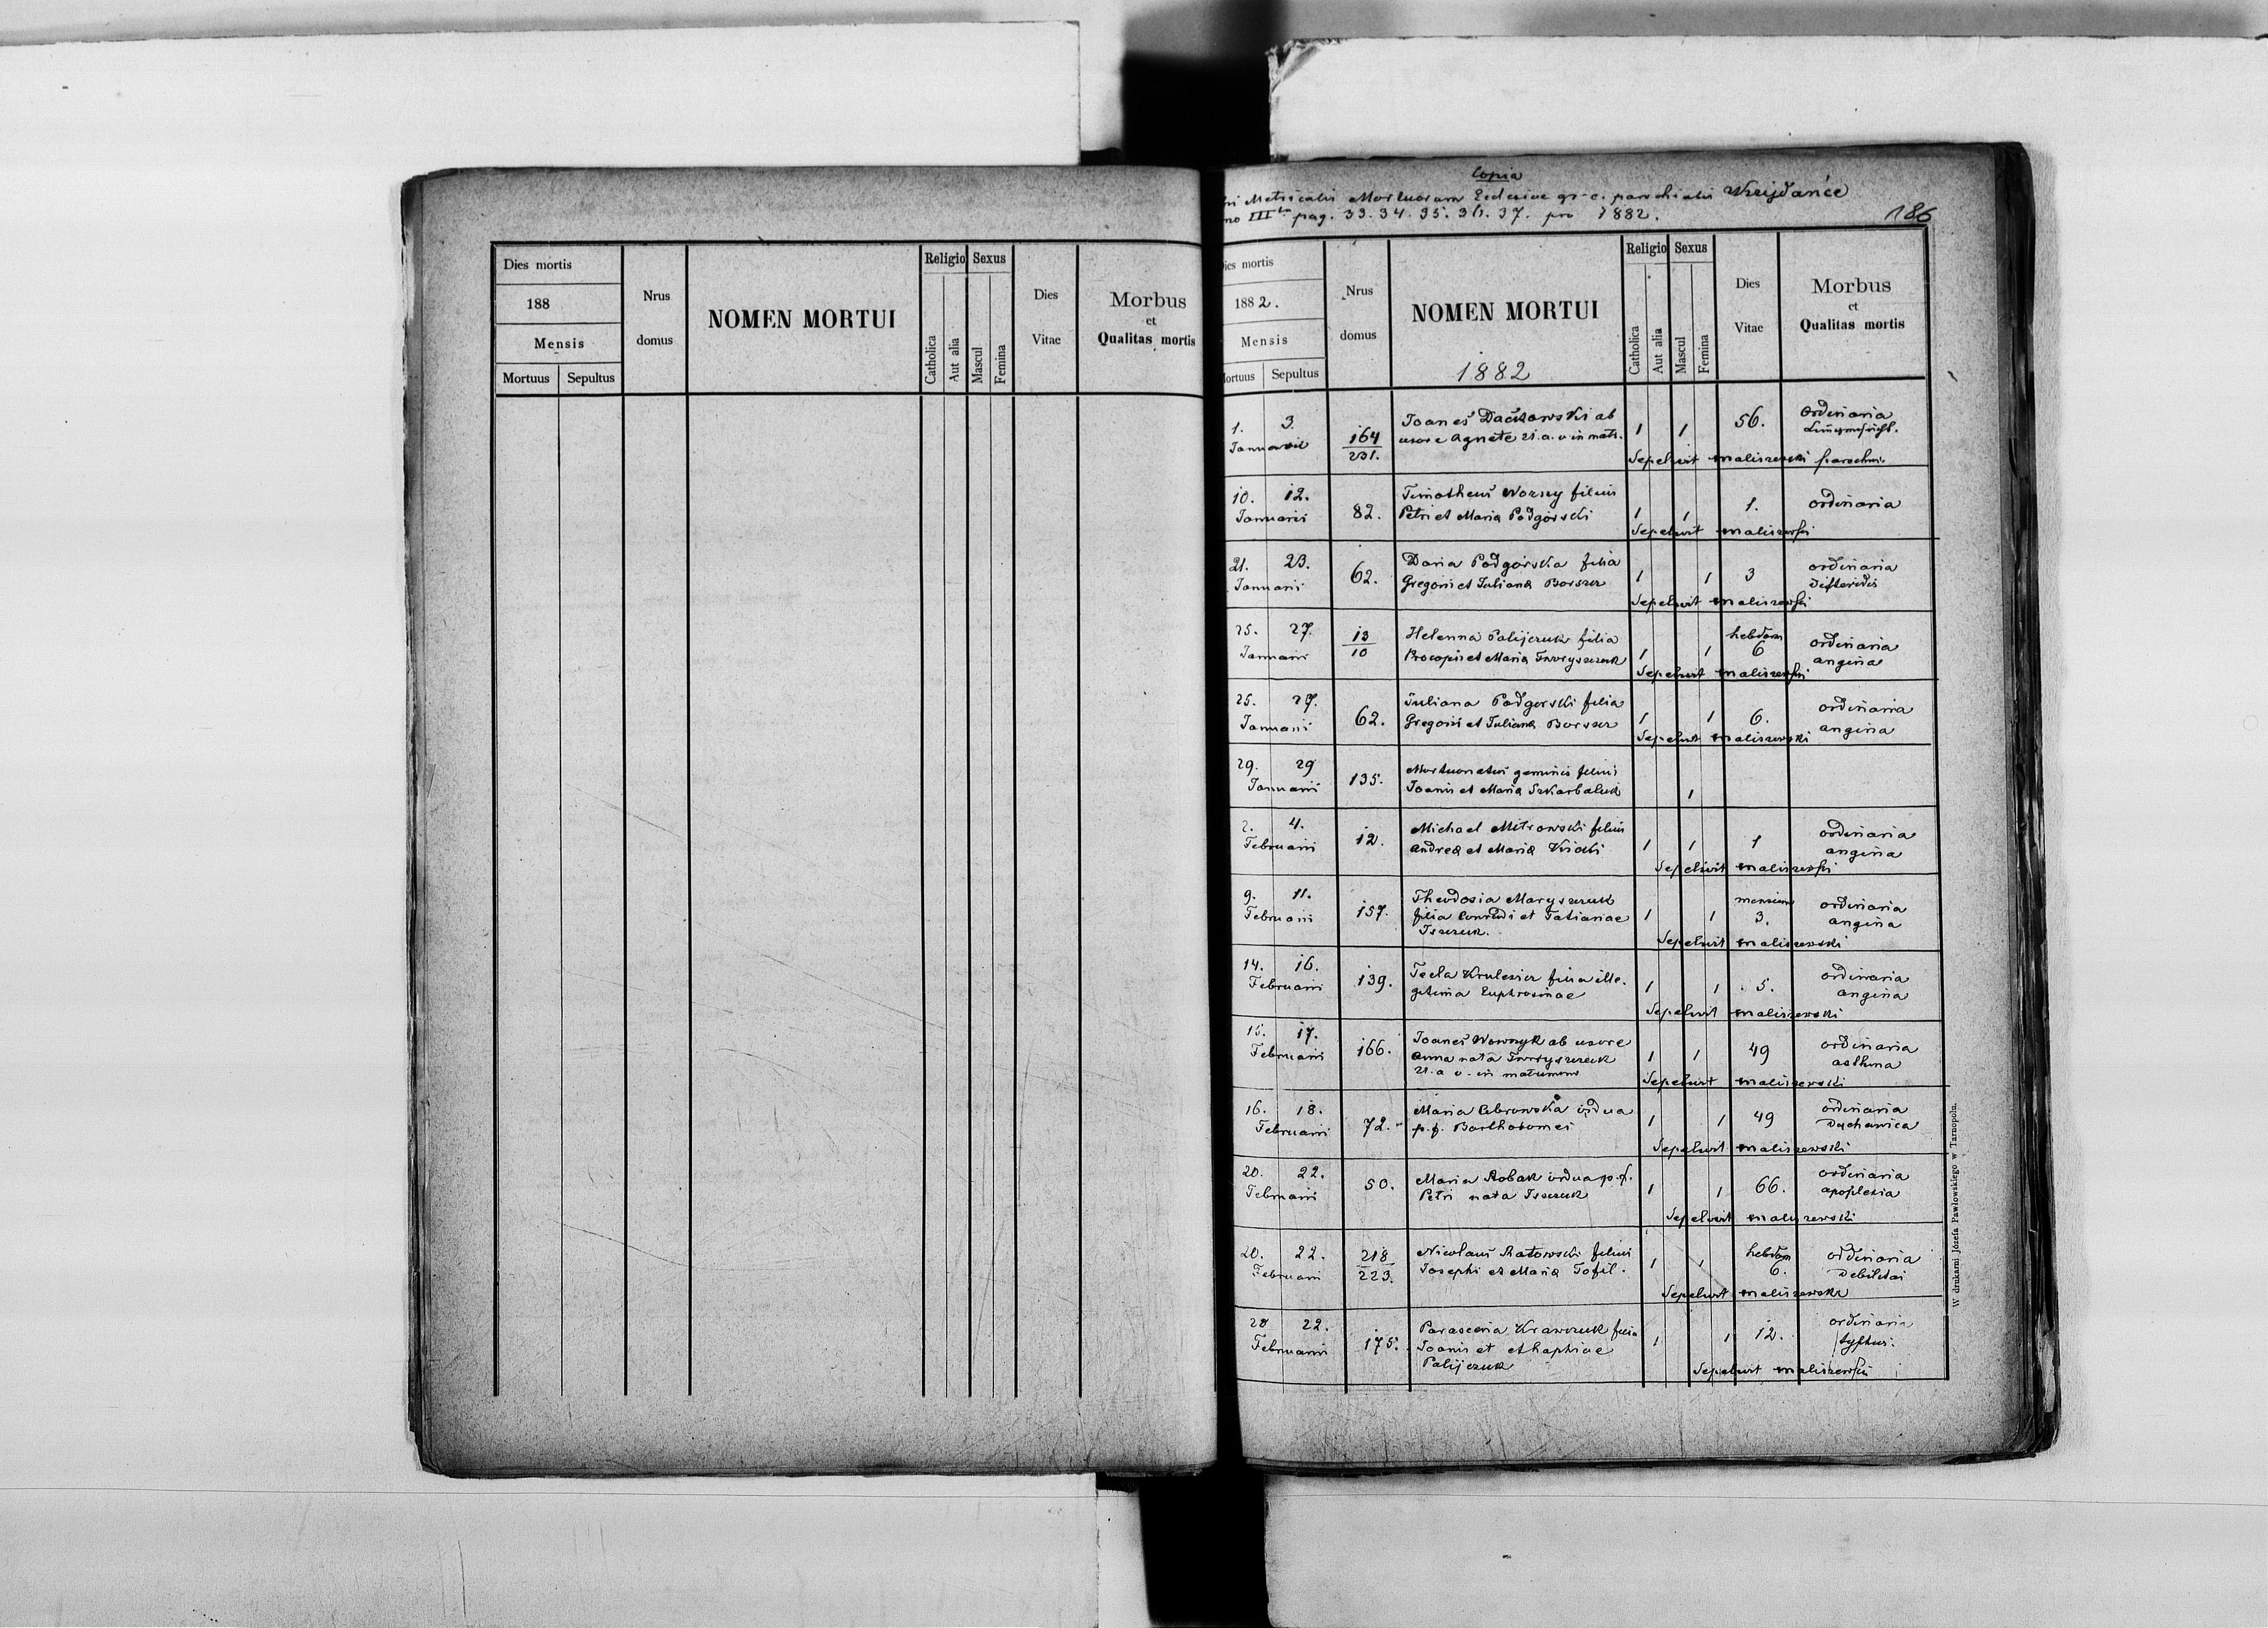 Dies mortis
188
Mensis
Mortuus Sepultus
Nrus
domus
NOMEN MORTUI
Religio Sexus
Catholica
Aut alia
Mascul
Femina
Dies
Vitae
Morbus
et
Qualitas mortis
Copia
Metricalis Mortuorum Ecclesiae gr. c. parochialis
III pag. 33. 34. 35. 36. 37. pro 1882.
186
Dies mortis
1882.
Mensis
Mortuus Sepultus
Nrus
domus
NOMEN MORTUI
1882
Religio Sexus
Catholica
Aut alia
Mascul
Femina
Dies
Vitae
Morbus
et
Qualitas mortis
1. 3. Januarii
164
231.
Joanes ab
uxore Agnete 21. a. v. in matr.
1 1 56. Ordinaria
Sepelivit Maliszewski parochus
10. 12. Januarii
82.
Timotheus filius
Petri et Maria Podgórski
1 1 1. ordinaria
Sepelivit Maliszewski
21. 23. Januarii
62.
Daria Podgórska filia
Gregorii et Juliana
1 1 3 ordinaria
Sepelivit Maliszewski
25. 27. Januarii
13
10
Helenna Palijczuk filia
Procopii et Maria
1 1 hebdom 6 ordinaria
angina
Sepelivit Maliszewski
25. 27. Januarii
62.
Juliana Podgorski filia
Gregorii et Juliana
1 1 6. ordinaria
angina
Sepelivit Maliszewski
29. 29 Januarii
135.
Mortuonatus geminis filius
Joanis et Maria Szkarbaluk
1
2. 4. Februarii
12.
Michael Mitrowski filius
Andrea et Maria
1 1 1 ordinaria
angina
Sepelivit Maliszewski
9. 11. Februarii
157.
Theodosia Maryszczuk
filia et Tatianae
1 1 mensium 3. ordinaria
angina
Sepelivit Maliszewski
14. 16. Februarii
139.
Tecla filia ille-
gitima Euphrosinae
1 1 5. ordinaria
angina
Sepelivit Maliszewski
15. 17. Februarii
166.
Joanes ab uxore
Anna nata
21. a v. in matrimonio
1 1 49 ordinaria
asthma
Sepelivit Maliszewski
16. 18. Februarii
72.
Maria vidua
p. f. Bartholomei
1 1 49 ordinaria
Sepelivit Maliszewski
20. 22. Februarii
50.
Maria Robak vidua p. f.
Petri nata
1 1 66. ordinaria
apoplexia
Sepelivit Maliszewski
20. 22. Februarii
218
223.
Nicolaus Ratowski filius
Josephi et Maria Tofil.
1 1 hebdom 6. ordinaria
debilitas
Sepelivit Maliszewski
20 22. Februarii
175.
Parascevia Krawczuk filia
Joanis et
Palijczuk
1 1 12. ordinaria
typhus.
Sepelivit Maliszewski
W drukarni Józefa Pawłowskiego w Tarnopolu.